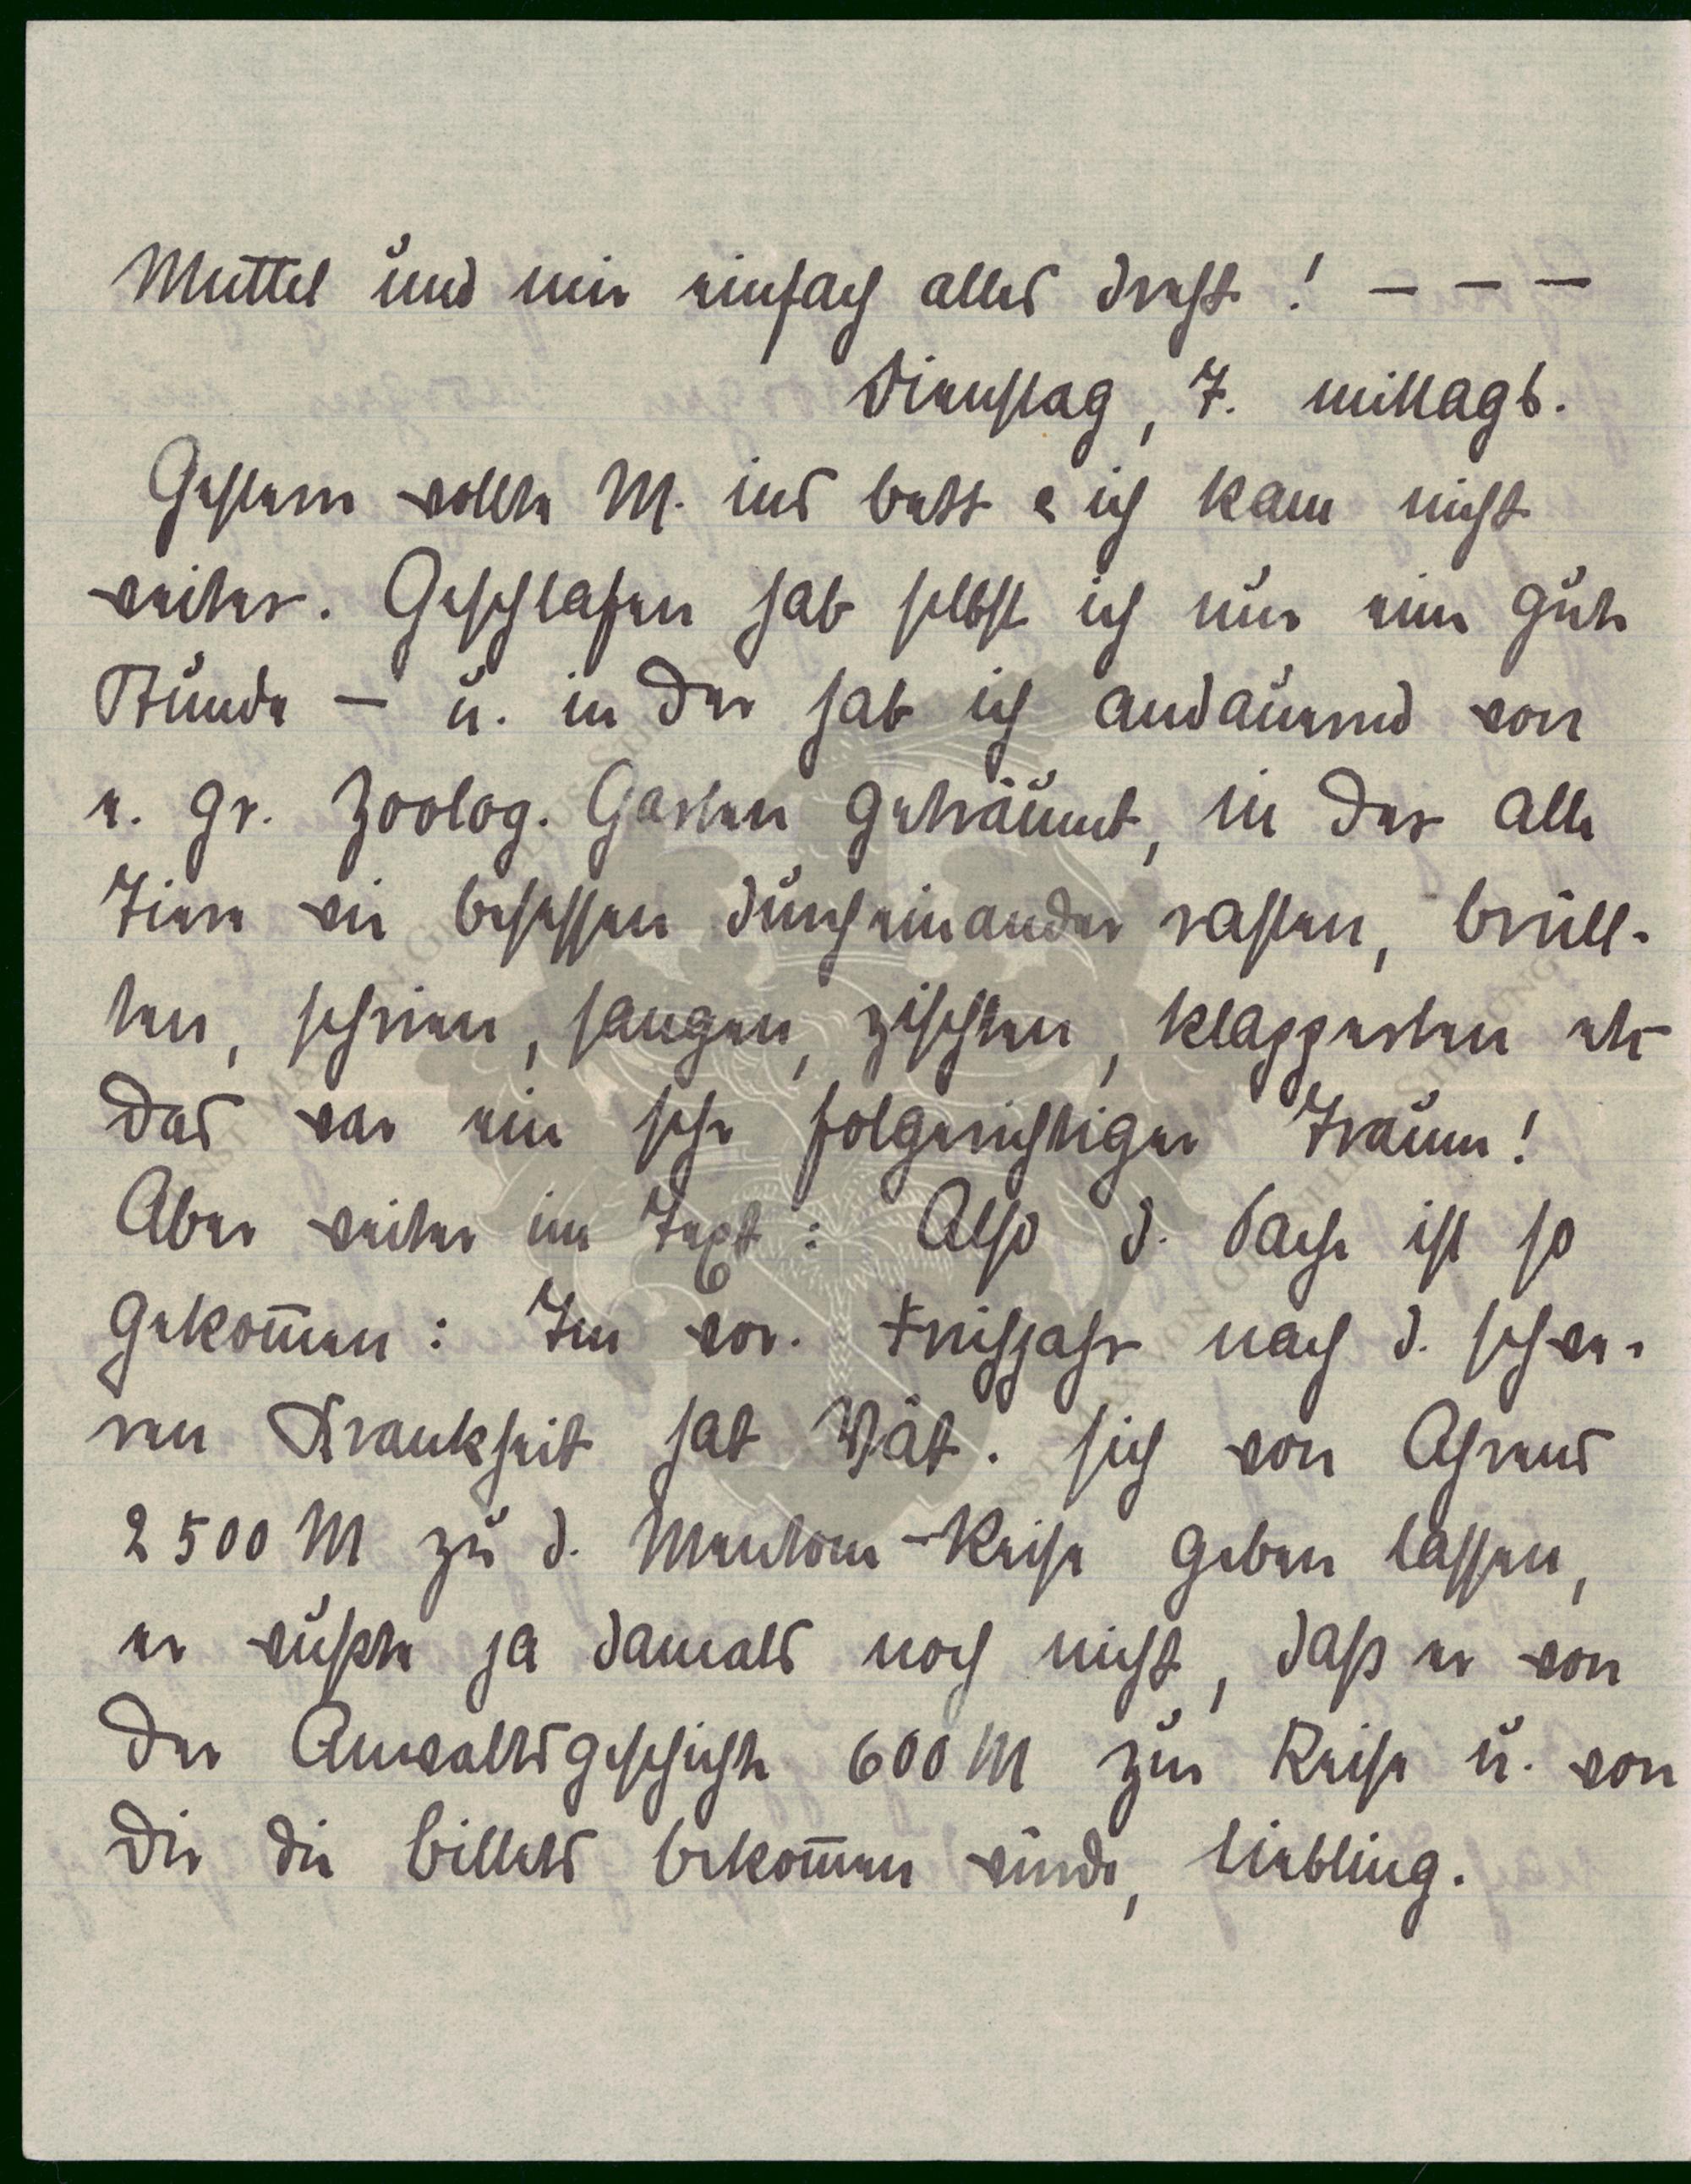 Muttel und mir einfach alles dreht! – – –
Dienstag, 7. mittags.
Gestern wollte M. ins bett & ich kam nicht
weiter. Geschlafen hab selbst ich nur eine gute
Stunde – u. in der hab ich andauernd von
e. gr. Zoolog. Garten geträumt, in der alle
Tiere wie besessen durcheinander rasten, brüll-
ten, schrien, sangen, zischten, klapperten etc
das war ein sehr folgerichtiger Traum!
Aber weiter im Text: Also d. Sache ist so
gekom̅en: Im vor. Frühjahr nach d. schwe-
ren Krankheit hat Vat. sich von Ahrens
2500 M zu d. Mentone-Reise geben lassen,
er wußte ja damals noch nicht, daß er von
der Anwaltsgeschichte 600 M zur Reise u. von
Dir die billets bekom̅en würde, liebling.